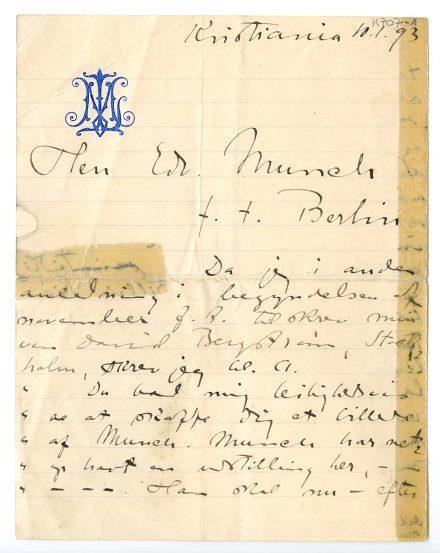 K707-1
Kristiania 10.1.93
Herr Edv. Munch
f. t. Berlin
Da jeg i anden
anledning i begyndelsen af
november f. å. tilskrev min
ven David Bergström, Stok
holm, skrev jeg bl. a.
" Du bad mig leilighedsvis
" at skaffe dig et billede
" af Munch. Munch har net
" op havt en udstilling her, –
" – – –. Han skal nu – efter